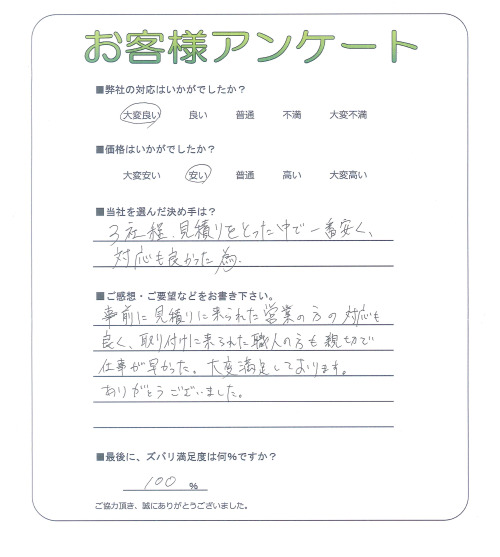 お客様アンケート
■弊社の対応はいかがでしたか？
大変良い 良い 普通 不満 大変不満
■価格はいかがでしたか？
大変安い 安い 普通 高い 大変高い
■当社を選んだ決め手は？
3社程、見積りをとった中で一番安く、
対応も良かった為。
■ご感想・ご要望などをお書き下さい。
事前に見積りに来られた営業の方の対応も
良く、取り付けに来られた職人の方も親切で
仕事が早かった。大変満足しております。
ありがとうございました。
■最後に、ズバリ満足度は何％ですか？
100 ％
ご協力頂き、誠にありがとうございました。